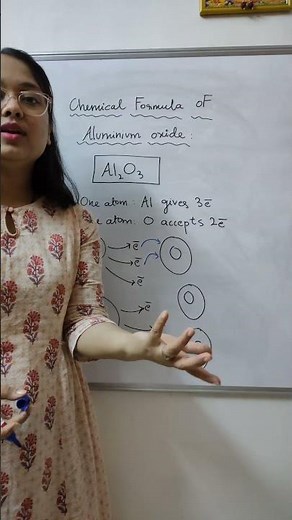 Chemical Formula of
Aluminium oxide:
Al₂O₃
One atom: Al gives 3ē
atom: O accepts 2ē
ē ē ē O
ē O